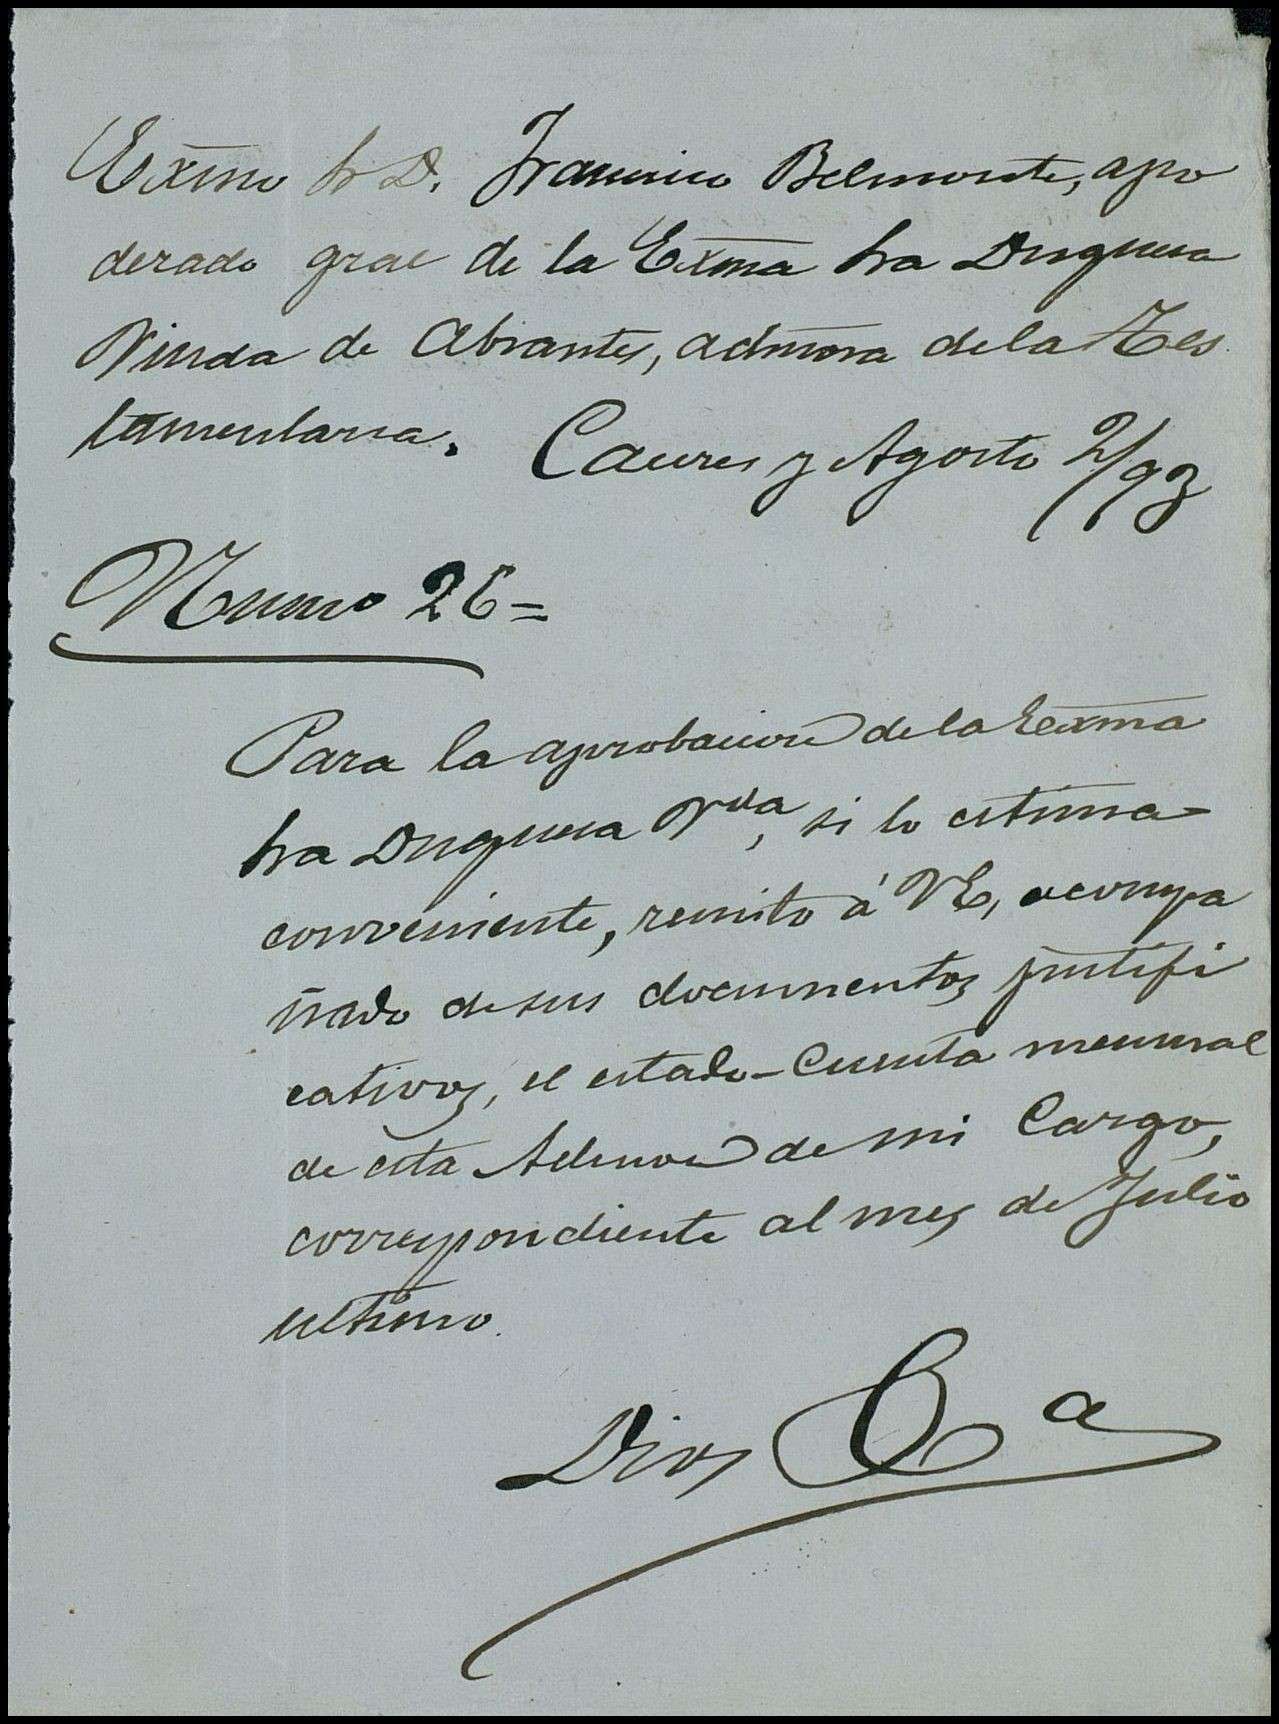 Exmo Sr D. Francisco Belmonte, apo
derado gral de la Exma Sra Duquesa
Viuda de Abrantes, admora de la Tes
tamentaria. Caceres y Agosto 2/93
Numo 26=
Para la aprobacion de la Exma
Sra Duquesa Vda, si lo estima
conveniente, remito á VE, acompa
ñado de sus documentos justifi
cativos, el estado-cuenta mensual
de esta Admon de mi Cargo,
correspondiente al mes de Julio
ultimo.
Dios